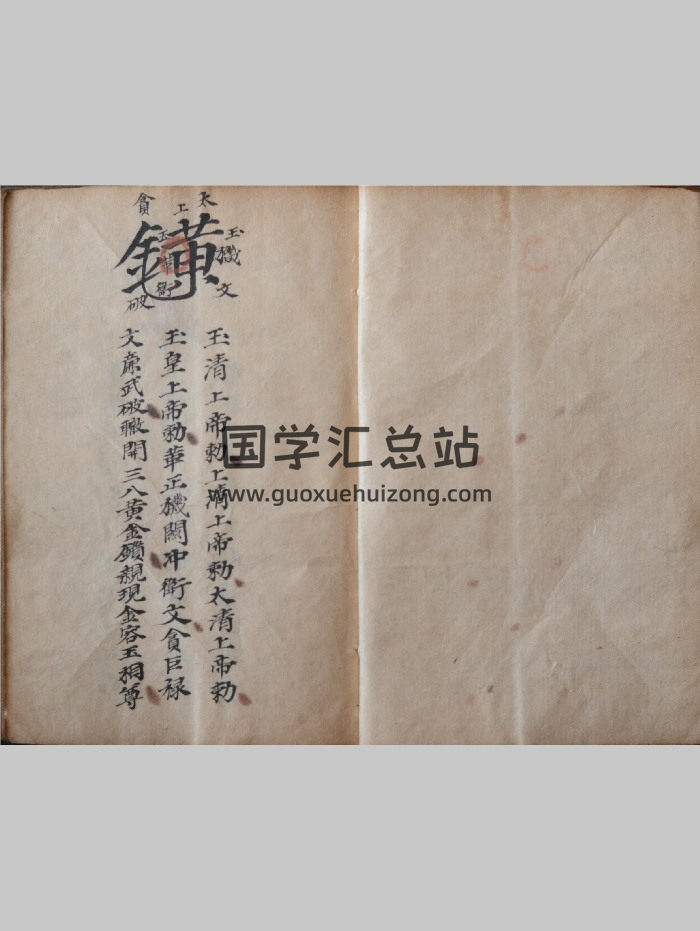 太
上
貪
玉
璣
文
破
衝
玉清上帝勅上清上帝勅太清上帝勅
玉皇上帝勅華正機關冲衝文貪巨祿
文廉武破轍開三八黃金鑽親現金容玉相尊
国学汇总站
www.guoxuehuizong.com